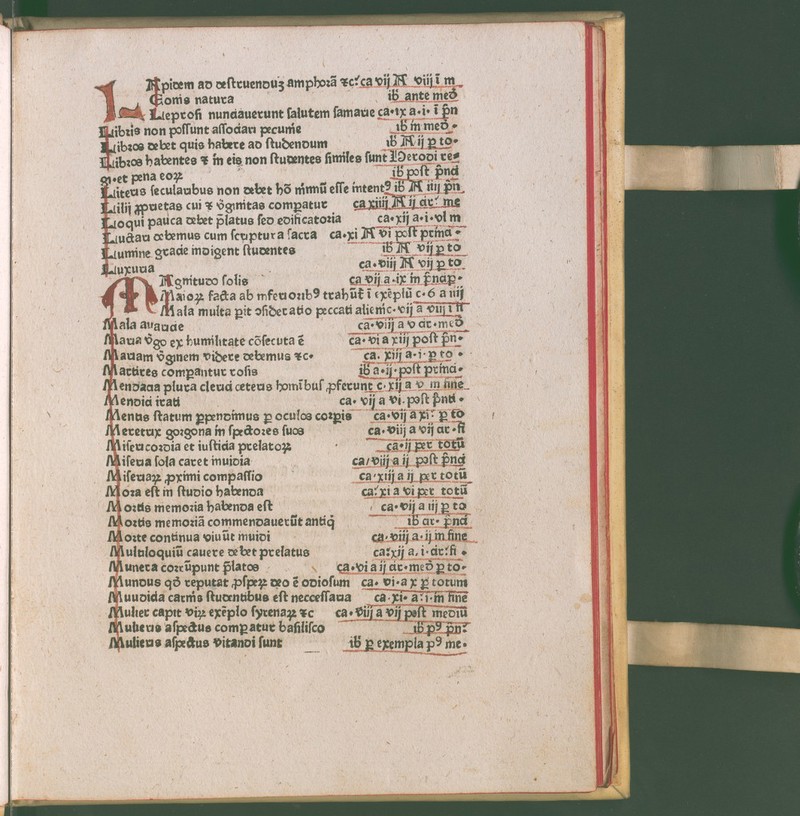 LApidem ad destruenduꝫ amphorā ⁊c̄ ca vij A viij ī m
Leonis natura ib̄ ante med̄
Leprosi nunciauerunt salutem samarie ca·ix a·i·ī p̄n
Libris non possunt associari pecunie ib̄ in med̄·
Libros debet quis habere ad studendum ib̄ A ij p to·
Libros habentes ⁊ in eis non studentes similes sunt Herodi re⸗
gi·et pena eoꝝ ib̄ post p̄nci
Litteris secularibus non debet hō nimiū esse intentꝰ ib̄ A iiij p̄n
Lilij ꝓprietas cui ⁊ v̄ginitas comparatur ca xiiij A ij cir̄ me
Loqui pauca debet p̄latus sed edificatoria ca·xij a·i·vl m
Luctari debemus cum scriptura sacra ca·xi A vi post princi·
Lumine gracie indigent studentes ib̄ A vij ꝑ to
Luxuria ca·viij A vij ꝑ to
MAgnitudo solis ca vij a·ix in p̄ncip·
Maioꝝ facta ab inferioribꝰ trahūt̄ ī exēplū c·6 a iiij
Mala multa ꝑit ꝯsideratio peccati alieni c·vij a viij ī fi
Mala auaricie ca·viij a v cir·med̄
Maria v̄go ex humilitate cōsecuta ē ca·vi a xiij post p̄n·
Mariam v̄ginem videre debemus ⁊c· ca. xiij a·i·ꝑ to·
Martires comparantur rosis ib̄ a·ij·post princi·
Mendacia plura clerici ceteris hominibus ꝓferunt c·xij a v in fine
Mendici irati ca· vij a vi·post p̄nci·
Mentis statum ꝑpendimus ꝑ oculos corꝑis ca·vij a xi: ꝑ to
Meretrix gorgona inspectores suos ca·viij a vij cir·fi
Misericordia et iusticia prelatoꝝ ca·ij per totū
Miseria sola caret inuidia ca/viij a ij post p̄nci
Miseriaꝝ ꝓximi compassio ca·xiij a ij per totū
Mora est in studio habenda ca:xi a vi per totū
Mortis memoria habenda est ca·vij a iij ꝑ to
Mortis memoriā commendauerūt antiq̄ ib̄ cir· p̄nci
Morte continua viuūt inuidi ca·viij a·ij in fine
Multiloquiū cauere debet prelatus ca:xij a.i·cir:fi·
Munera corrūpunt p̄latos ca·vi a ij cir·med̄ ꝑ to·
Mundus qd̄ reputat ꝓsperꝝ deo ē odiosum ca· vi·a x ꝑ totum
Mundicia carnis studentibus est neccessaria ca·xi·a:i·in fine
Mulier capit viꝝ exēplo syrenaꝝ ⁊c ca·viij a vij post mediū
Mulieris aspectus comparatur basilisco ib̄ pꝰ p̄n:
Mulieris aspectus vitandi sunt ib̄ ꝑ exempla pꝰ me·